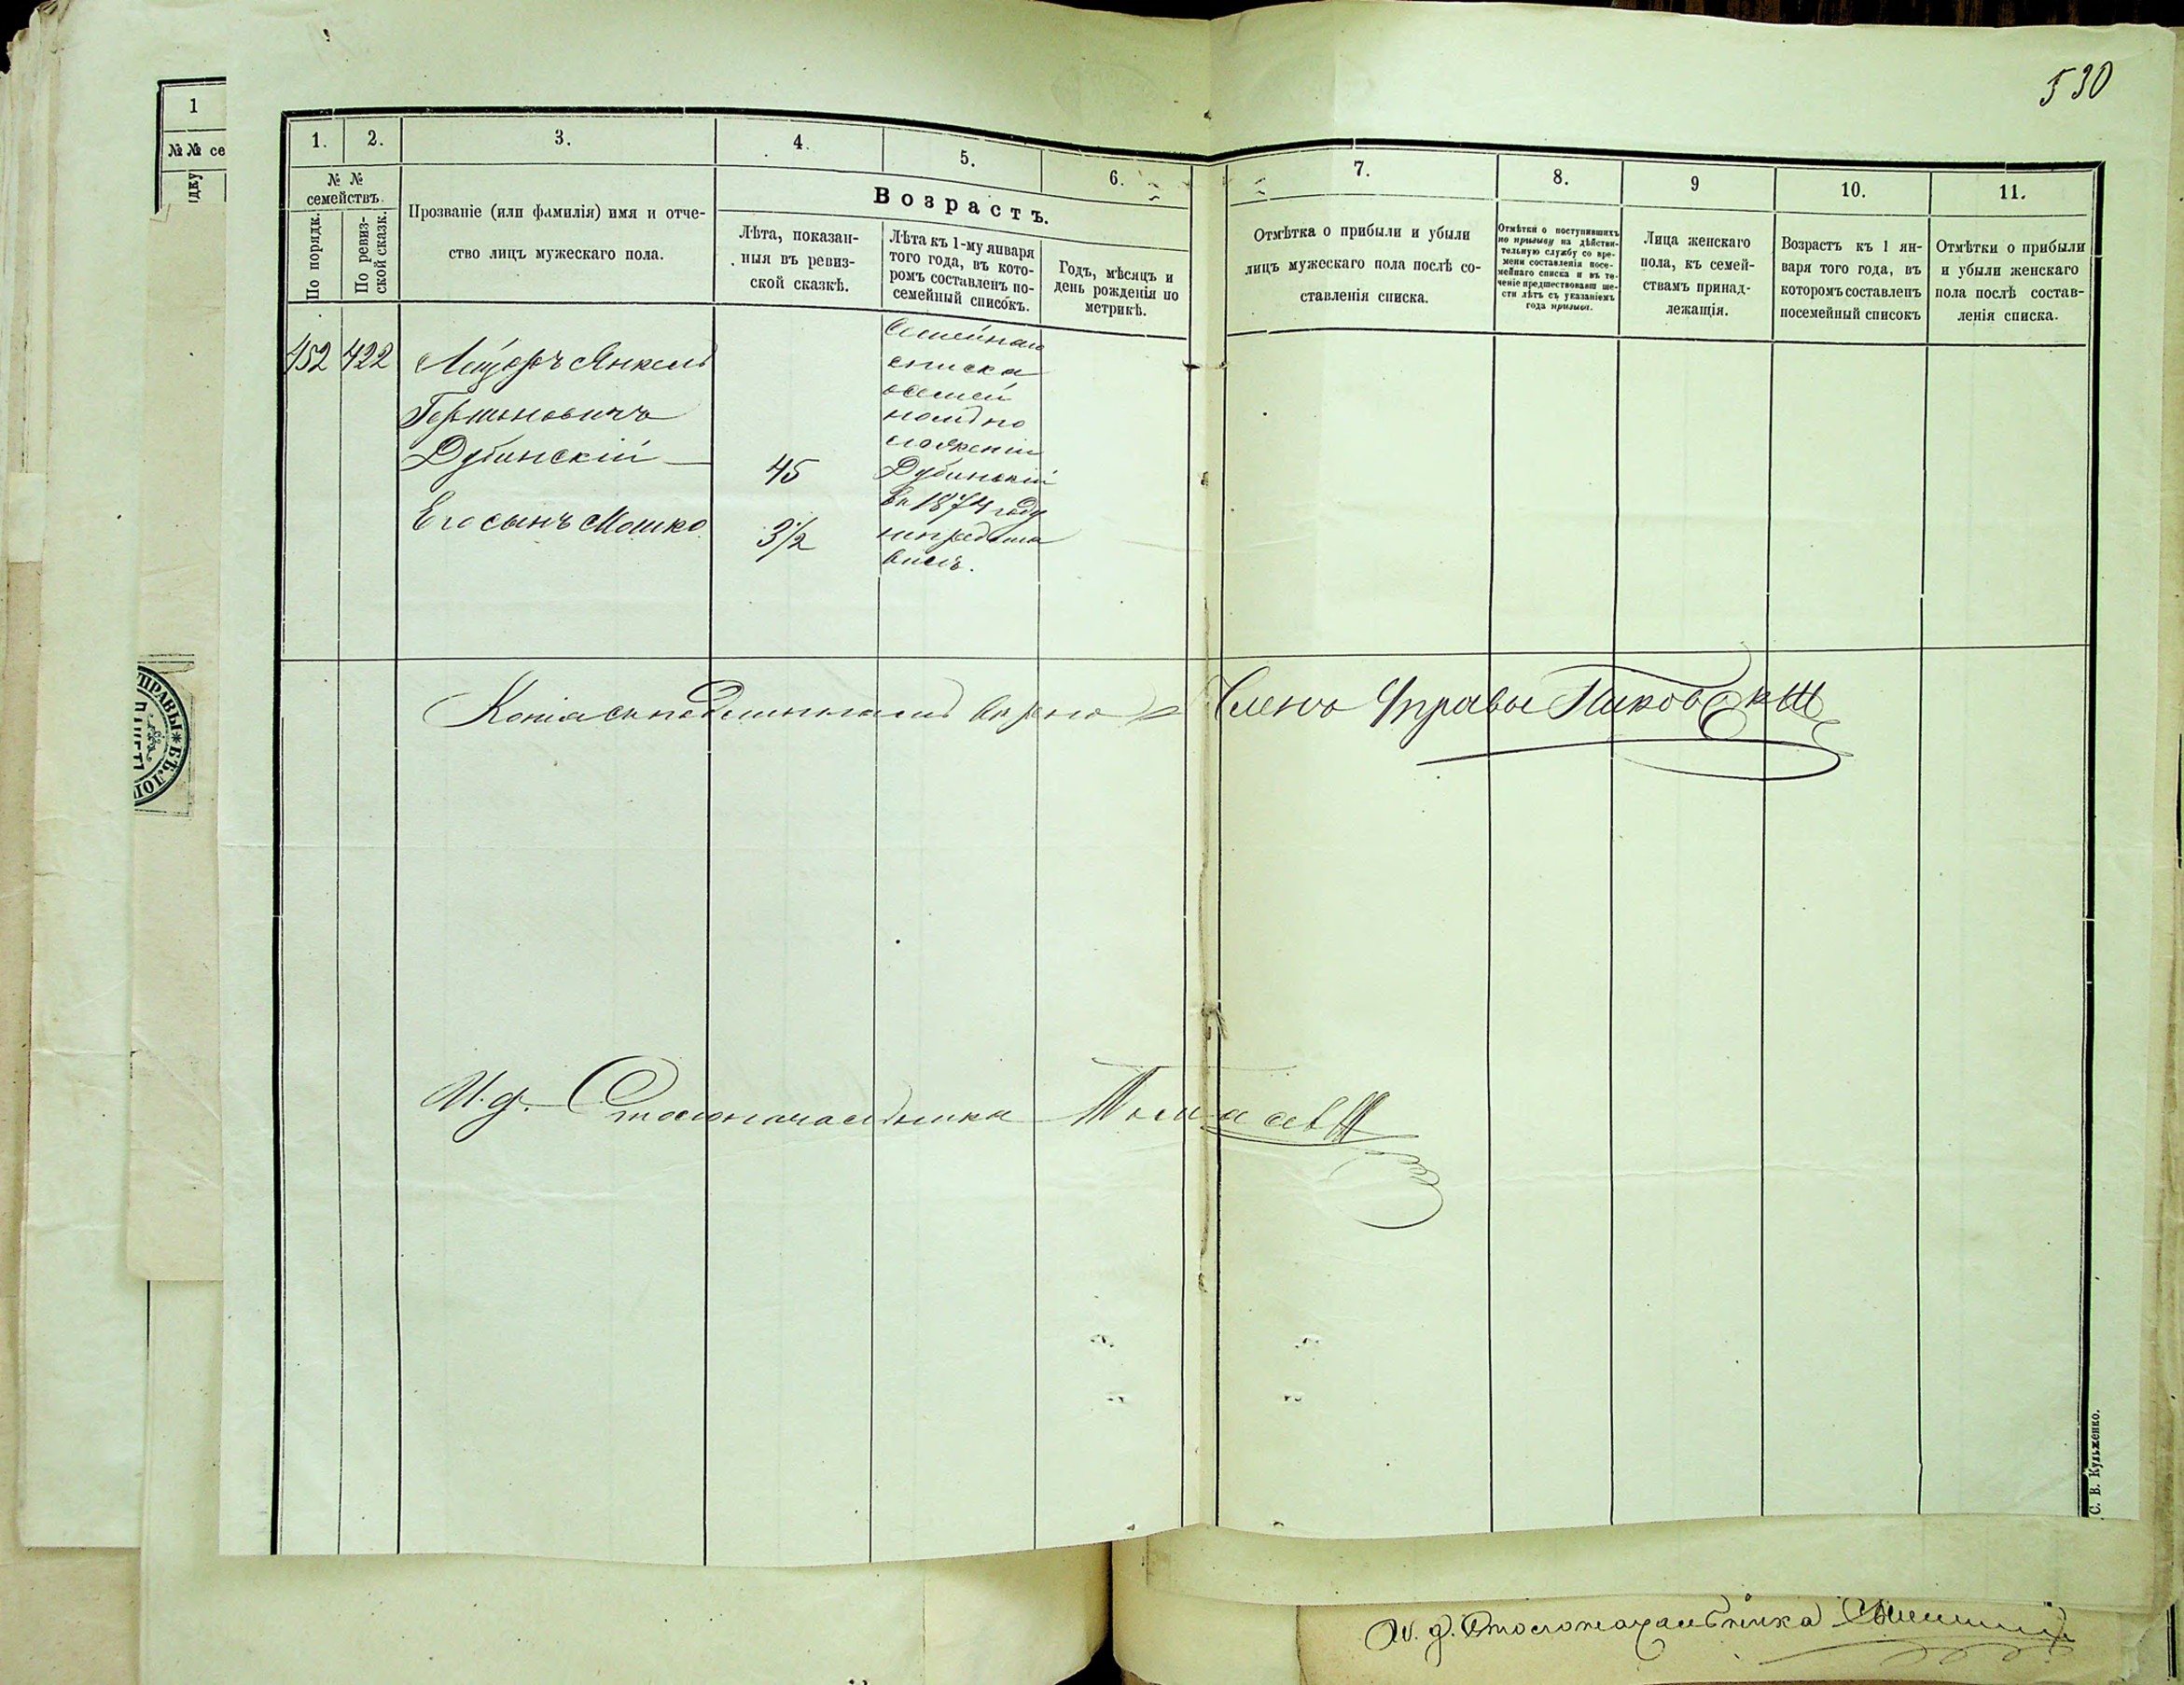 530
1
№№ се
1. 2. 3. 4. 5. 6. 7. 8. 9 10. 11.
№ №
семействъ.
По порядк.
По ревиз-
ской сказк.
Прозваніе (или фамилія) имя и отче-
ство лицъ мужескаго пола.
Возрастъ.
Лѣта, показан-
ныя въ ревиз-
ской сказкѣ.
Лѣта къ 1-му января
того года, въ кото-
ромъ составленъ по-
семейный списокъ.
Годъ, мѣсяцъ и
день рожденія по
метрикѣ.
Отмѣтка о прибыли и убыли
лицъ мужескаго пола послѣ со-
ставленія списка.
Отмѣтки о поступившихъ
по призыву на дѣйстви-
тельную службу со вре-
мени составленія посе-
мейнаго списка и въ те-
ченіе предшествовавш ше-
сти лѣтъ съ указаніемъ
года призыва.
Лица женскаго
пола, къ семей-
ствамъ принад-
лежащія.
Возрастъ къ 1 ян-
варя того года, въ
которомъ составленъ
посемейный списокъ
Отмѣтки о прибыли
и убыли женскаго
пола послѣ состав-
ленія списка.
452 422 Янкель
Дубинскій 45
Его сынъ Мошко 3/2
Семейнаго
списка
о семей
номъ по
ложеніи
Дубинскій
въ 1874 году
непредста
вилъ.
Копія съ подлиннымъ вѣрно Членъ Управы
И. д. Столоначальника
И. д. Столоначальника
С. В. Кульженко.